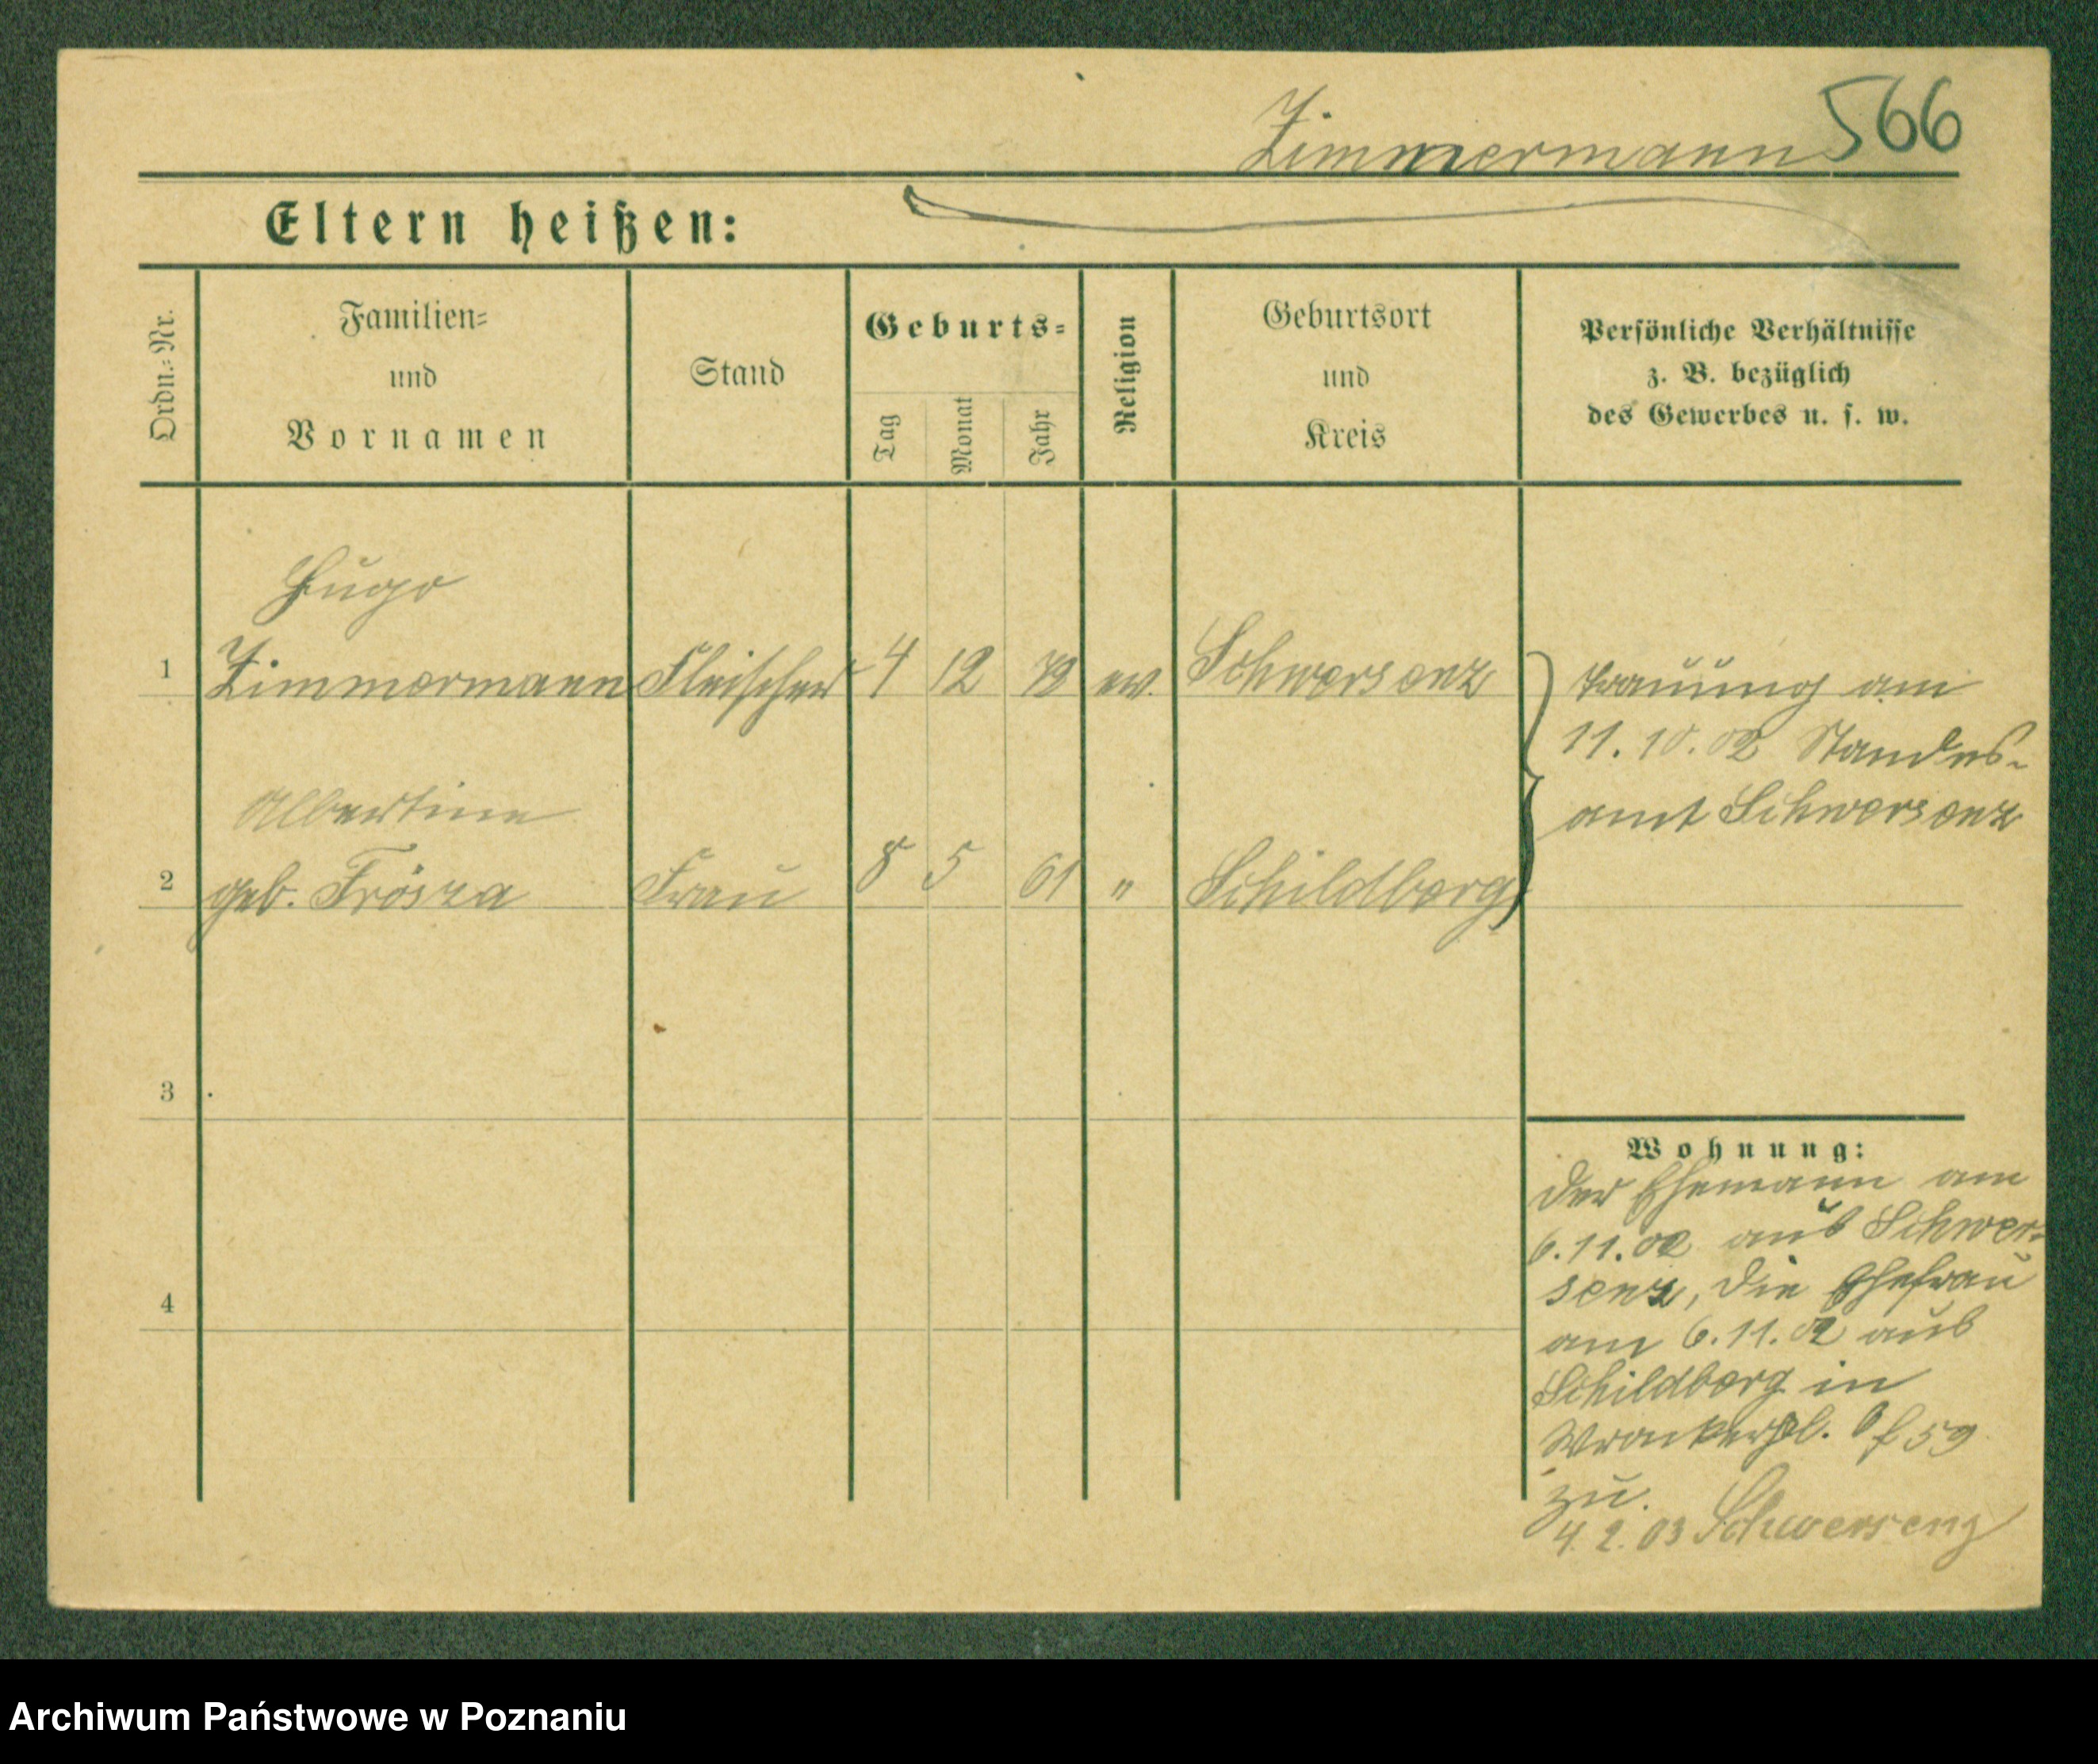 Zimmermann 566
Eltern heißen:
Ordn.-Nr.
Familien-
und
Vornamen
Stand
Geburts-
Tag
Monat
Jahr
Religion
Geburtsort
und
Kreis
Persönliche Verhältnisse
z. B. bezüglich
des Gewerbes u. s. w.
Hugo
1 Zimmermann Fleischer 4 12 73 ev. Schwersenz
Trauung am
11.10.02 Standes-
amt Schwersenz
Albertine
2 geb. Frösza Frau 8 5 61 " Schildberg
3
4
Wohnung:
Der Ehemann am
6.11.02 aus Schwer-
senz, die Ehefrau
am 6.11.02 aus
Schildberg in
Wronkerpl. 59
zu.
4.2.03 Schwersenz
Archiwum Państwowe w Poznaniu